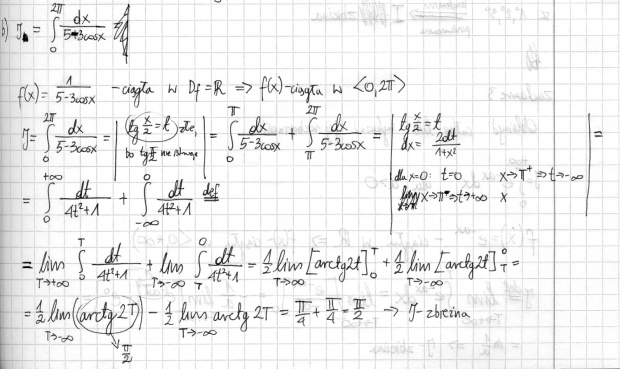 b) J = ∫₀^{2π} dx/(5-3cosx)
f(x) = 1/(5-3cosx) - ciągła w Df = ℝ ⇒ f(x)-ciągła w <0,2π>
J = ∫₀^{2π} dx/(5-3cosx) = | (tg x/2 = t) -źle, bo tg π/2 nie istnieje | = ∫₀^{π} dx/(5-3cosx) + ∫_{π}^{2π} dx/(5-3cosx) = | tg x/2 = t dx = 2dt/(1+x²) dla x=0: t=0 x→π⁺ ⇒ t→-∞ x→π⁻ ⇒ t→+∞ x | =
= ∫₀^{+∞} dt/(4t²+1) + ∫_{-∞}^{0} dt/(4t²+1) def
= lim_{T→+∞} ∫₀^{T} dt/(4t²+1) + lim_{T→-∞} ∫_{T}^{0} dt/(4t²+1) = 1/2 lim_{T→∞} [arctg2t]₀^{T} + 1/2 lim_{T→-∞} [arctg2t]_{T}^{0} =
= 1/2 lim_{T→-∞} (arctg 2T) - 1/2 lim_{T→-∞} arctg 2T = π/4 + π/4 = π/2 → J-zbieżna
π/2